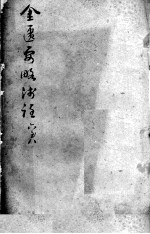 金匱要略淺註 六